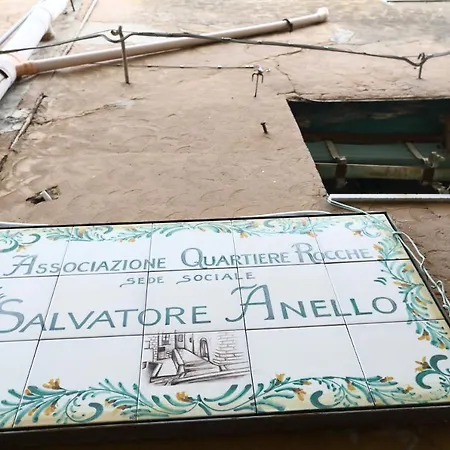 Associazione Quartiere Rocche
sede sociale
Salvatore Anello